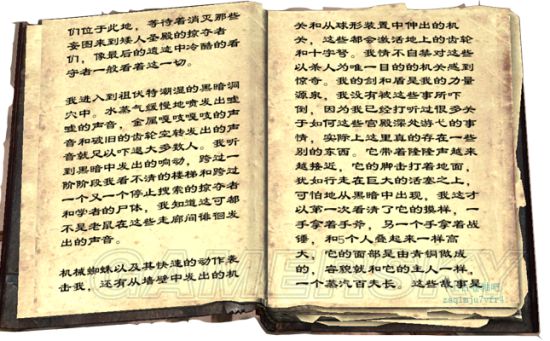 们位于此地，等待着消灭那些
妄图来到矮人圣殿的掠夺者
们，像最后的遗迹中冷酷的看
守者一般看着这一切。
我进入到祖伏特潮湿的黑暗洞
穴中。水蒸气缓慢地喷发出嘘
嘘的声音，金属嘎吱嘎吱的声
音和破旧的齿轮空转发出的声
音就足以吓退大多数人。我听
到黑暗中发出的响动，跨过一
阶阶段我看不清的楼梯和跨过
一个又一个停止搜索的掠夺者
和学者的尸体，我知道这可都
不是老鼠在这些走廊间徘徊发
出的声音。
机械蜘蛛以及其快速的动作袭
击我，还有从墙壁中发出的机
关和从球形装置中伸出的机
关，这些都会激活地上的齿轮
和十字弩。我情不自禁对这些
以杀人为唯一目的的机关感到
惊奇。我的剑和盾是我的力量
源泉，我没有被这些事所吓
倒，因为我已经打听过很多关
于如何这些宫殿深处游弋的事
情，实际上这里真的存在一些
别的东西。它带着隆隆声越来
越接近，它的脚击打着地面，
犹如行走在巨大的活塞之上，
可怕地从黑暗中出现，我这才
以第一次看清了它的摸样，一
手拿着手斧，另一个手拿着战
锤，和5个人叠起来一样高
大，它的面部是由青铜做成
的，容貌就和它的主人一样，
一个蒸汽百夫长。这些故事是
GAMERSKY